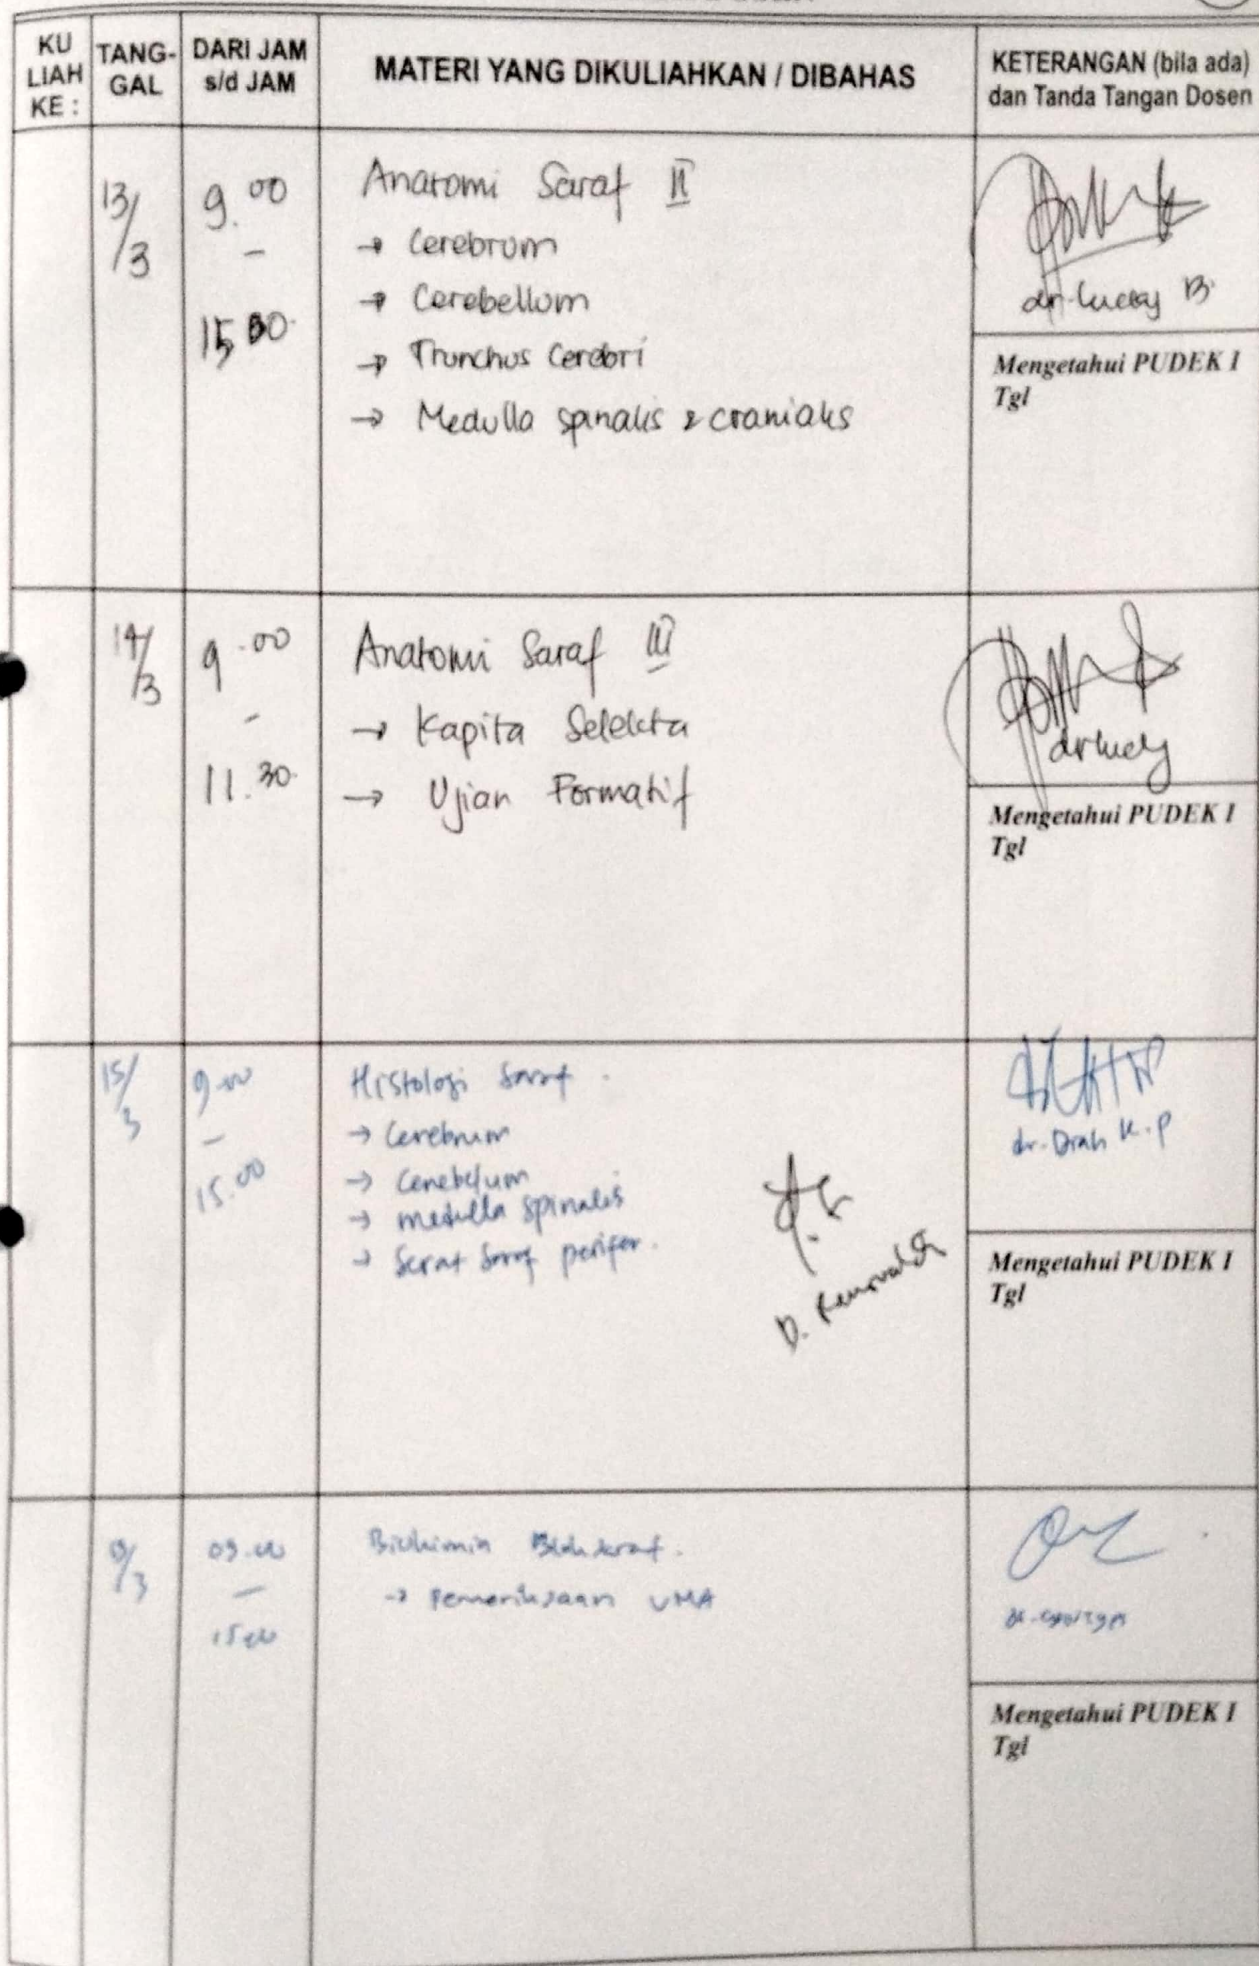 KU LIAH KE :
TANG-GAL
DARI JAM s/d JAM
MATERI YANG DIKULIAHKAN / DIBAHAS
KETERANGAN (bila ada) dan Tanda Tangan Dosen
13/3
9.00
-
15.00
Anatomi Saraf II
→ Cerebrum
→ Cerebellum
→ Trunchus Cerebri
→ Medulla spinalis & cranialis
dr. Lucky B
Mengetahui PUDEK I
Tgl
14/3
9.00
-
11.30
Anatomi Saraf III
→ Kapita Selekta
→ Ujian Formatif
dr Lucky
Mengetahui PUDEK I
Tgl
15/3
9.00
-
15.00
Histologi Saraf.
→ Cerebrum
→ Cerebelum
→ medulla spinalis
→ Serat Saraf perifer.
dr. Diah K.P
Mengetahui PUDEK I
Tgl
/3
09.00
-
15.00
Biokimia
→ Pemeriksaan VMA
Mengetahui PUDEK I
Tgl